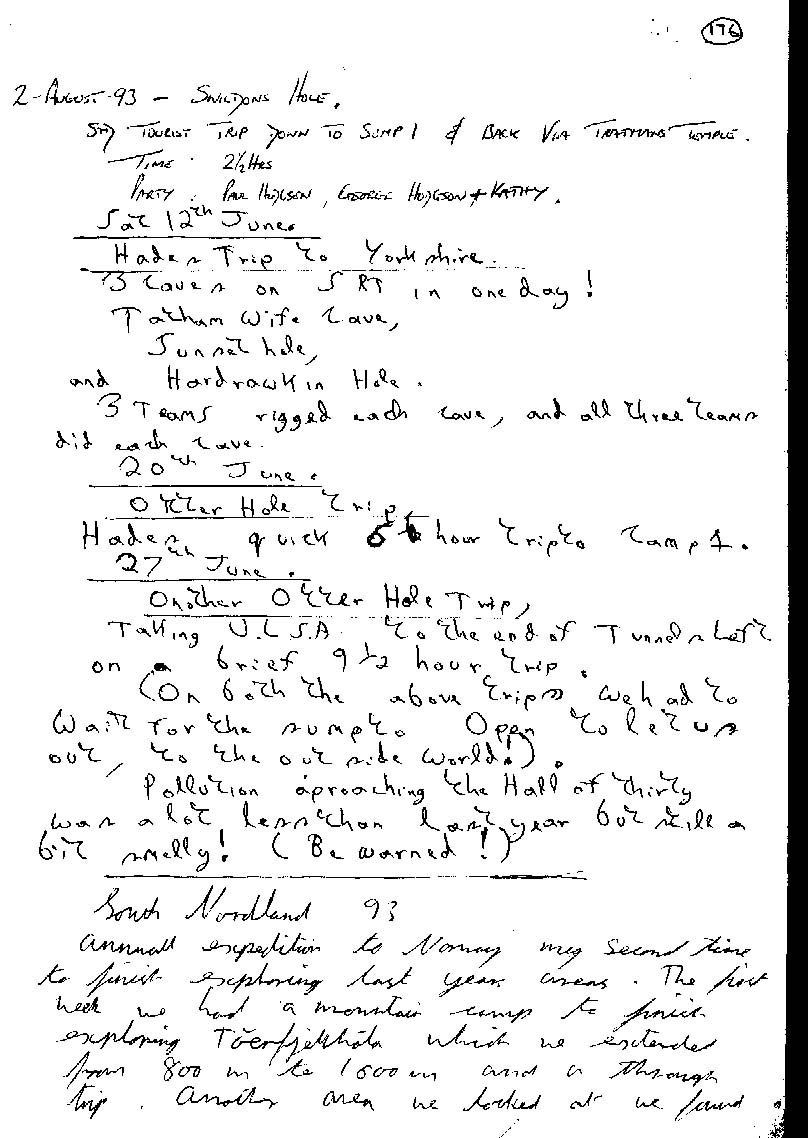 176
2-AUGUST-93 - SWILDONS HOLE.
TOURIST TRIP DOWN TO SUMP 1 & BACK VIA TRATMANS TEMPLE.
TIME : 2½ HRS
PARTY : PAUL HODGSON, GEORGE HODGSON + KATHY.
Sat 12th June.
Hades Trip to Yorkshire.
3 caves on SRT in one day!
Tatham Wife Cave,
Sunset hole,
and Hardrawkin Hole.
3 Teams rigged each cave, and all three teams
did each cave.
20th June.
Otter Hole trip,
Hades quick hour trip to Camp 1.
27th June.
Another Otter Hole Trip,
Taking U.L.S.A. to the end of Tunnels Left
on a brief 9 1/2 hour trip.
(On both the above trips we had to
wait for the sump to Open to let us
out, to the out side world!).
Pollution aproaching the Hall of thirty
was a lot less than last year but still a
bit smelly! (Be warned!)
South Nordland 93
Annuall expedition to Norway my second time
to finish exploring last years areas. The first
week we had a mountain camp to finish
exploring which we extended
from 800 m to 1600 m and a through
trip. Another area we looked at we found